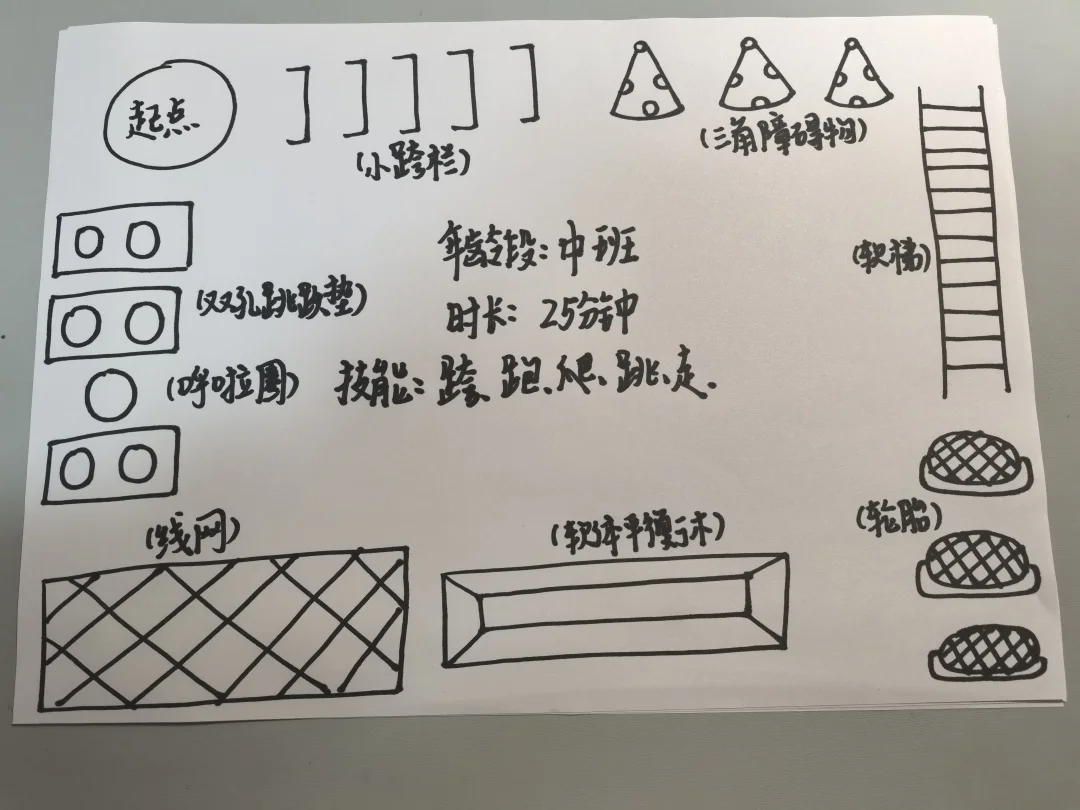 起点
(小跨栏)
(三角障碍物)
年龄段:中班
(软梯)
(双孔跳跃垫)
时长:25分钟
(呼啦圈)
技能:跨、跑、爬、跳、走.
(轮胎)
(线网)
(软体平衡木)